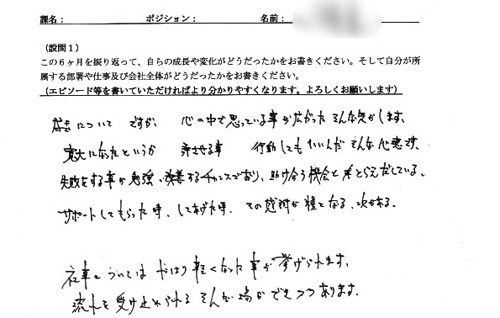 課名： ポジション： 名前：
（設問１）
この６ヶ月を振り返って、自らの成長や変化がどうだったかをお書きください。そして自分が所
属する部署や仕事及び会社全体がどうだったかをお書きください。
（エピソード等を書いていただければより分かりやすくなります。よろしくお願いします）
についてですが、心の中で思っている事が広がったそんな気がします。
寛大になったというか 事 行動してもいいんだそんな心境です。
失敗をする事が勉強、改善するチャンスであり、助け合う機会と考えとらえだしている。
サポートしてもらった時、してあげた時、その感謝が糧となる、次がある。
仕事についてはやはり軽くなった事が挙げられます。
流れを受け止められるそんな場ができつつあります。